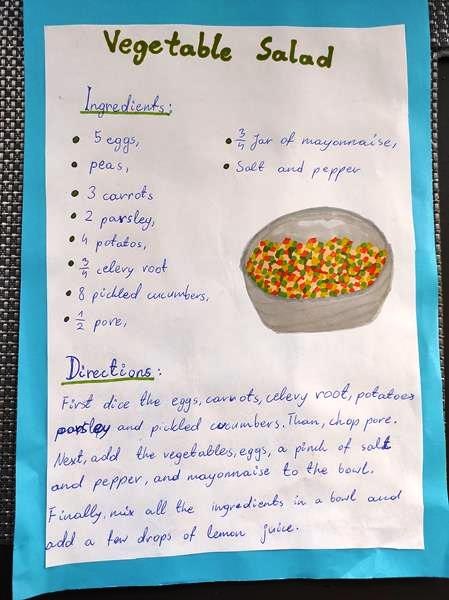 Vegetable Salad
Ingredients:
• 5 eggs,
• peas,
• 3 carrots
• 2 parsley,
• 4 potatos,
• 3/4 celery root
• 8 pickled cucumbers,
• 1/2 pore,
• 3/4 Jar of mayonnaise,
• Salt and pepper
Directions:
First dice the eggs, carrots, celery root, potatoes
parsley and pickled cucumbers. Than, chop pore.
Next, add the vegetables, eggs, a pinch of salt
and pepper, and mayonnaise to the bowl.
Finally, mix all the ingredients in a bowl and
add a few drops of lemon juice.